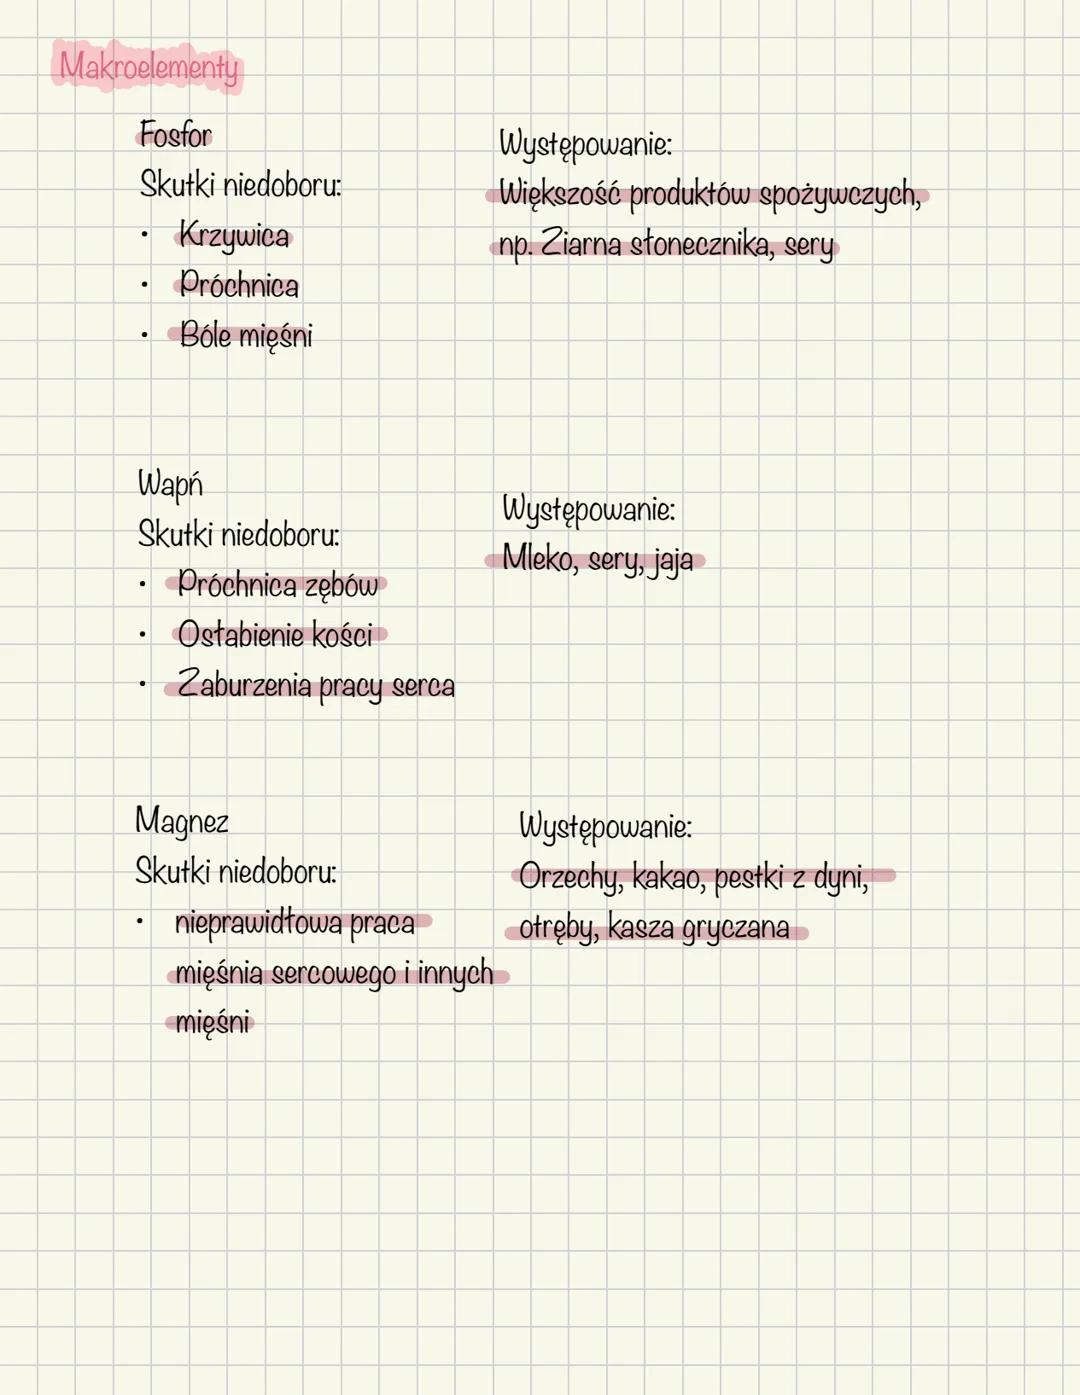 Makroelementy
Fosfor
Skutki niedoboru:
• Krzywica
• Próchnica
• Bóle mięśni
Występowanie:
Większość produktów spożywczych,
np. Ziarna słonecznika, sery
Wapń
Skutki niedoboru:
• Próchnica zębów
• Osłabienie kości
• Zaburzenia pracy serca
Występowanie:
Mleko, sery, jaja
Magnez
Skutki niedoboru:
• nieprawidłowa praca
mięśnia sercowego i innych
mięśni
Występowanie:
Orzechy, kakao, pestki z dyni,
otręby, kasza gryczana